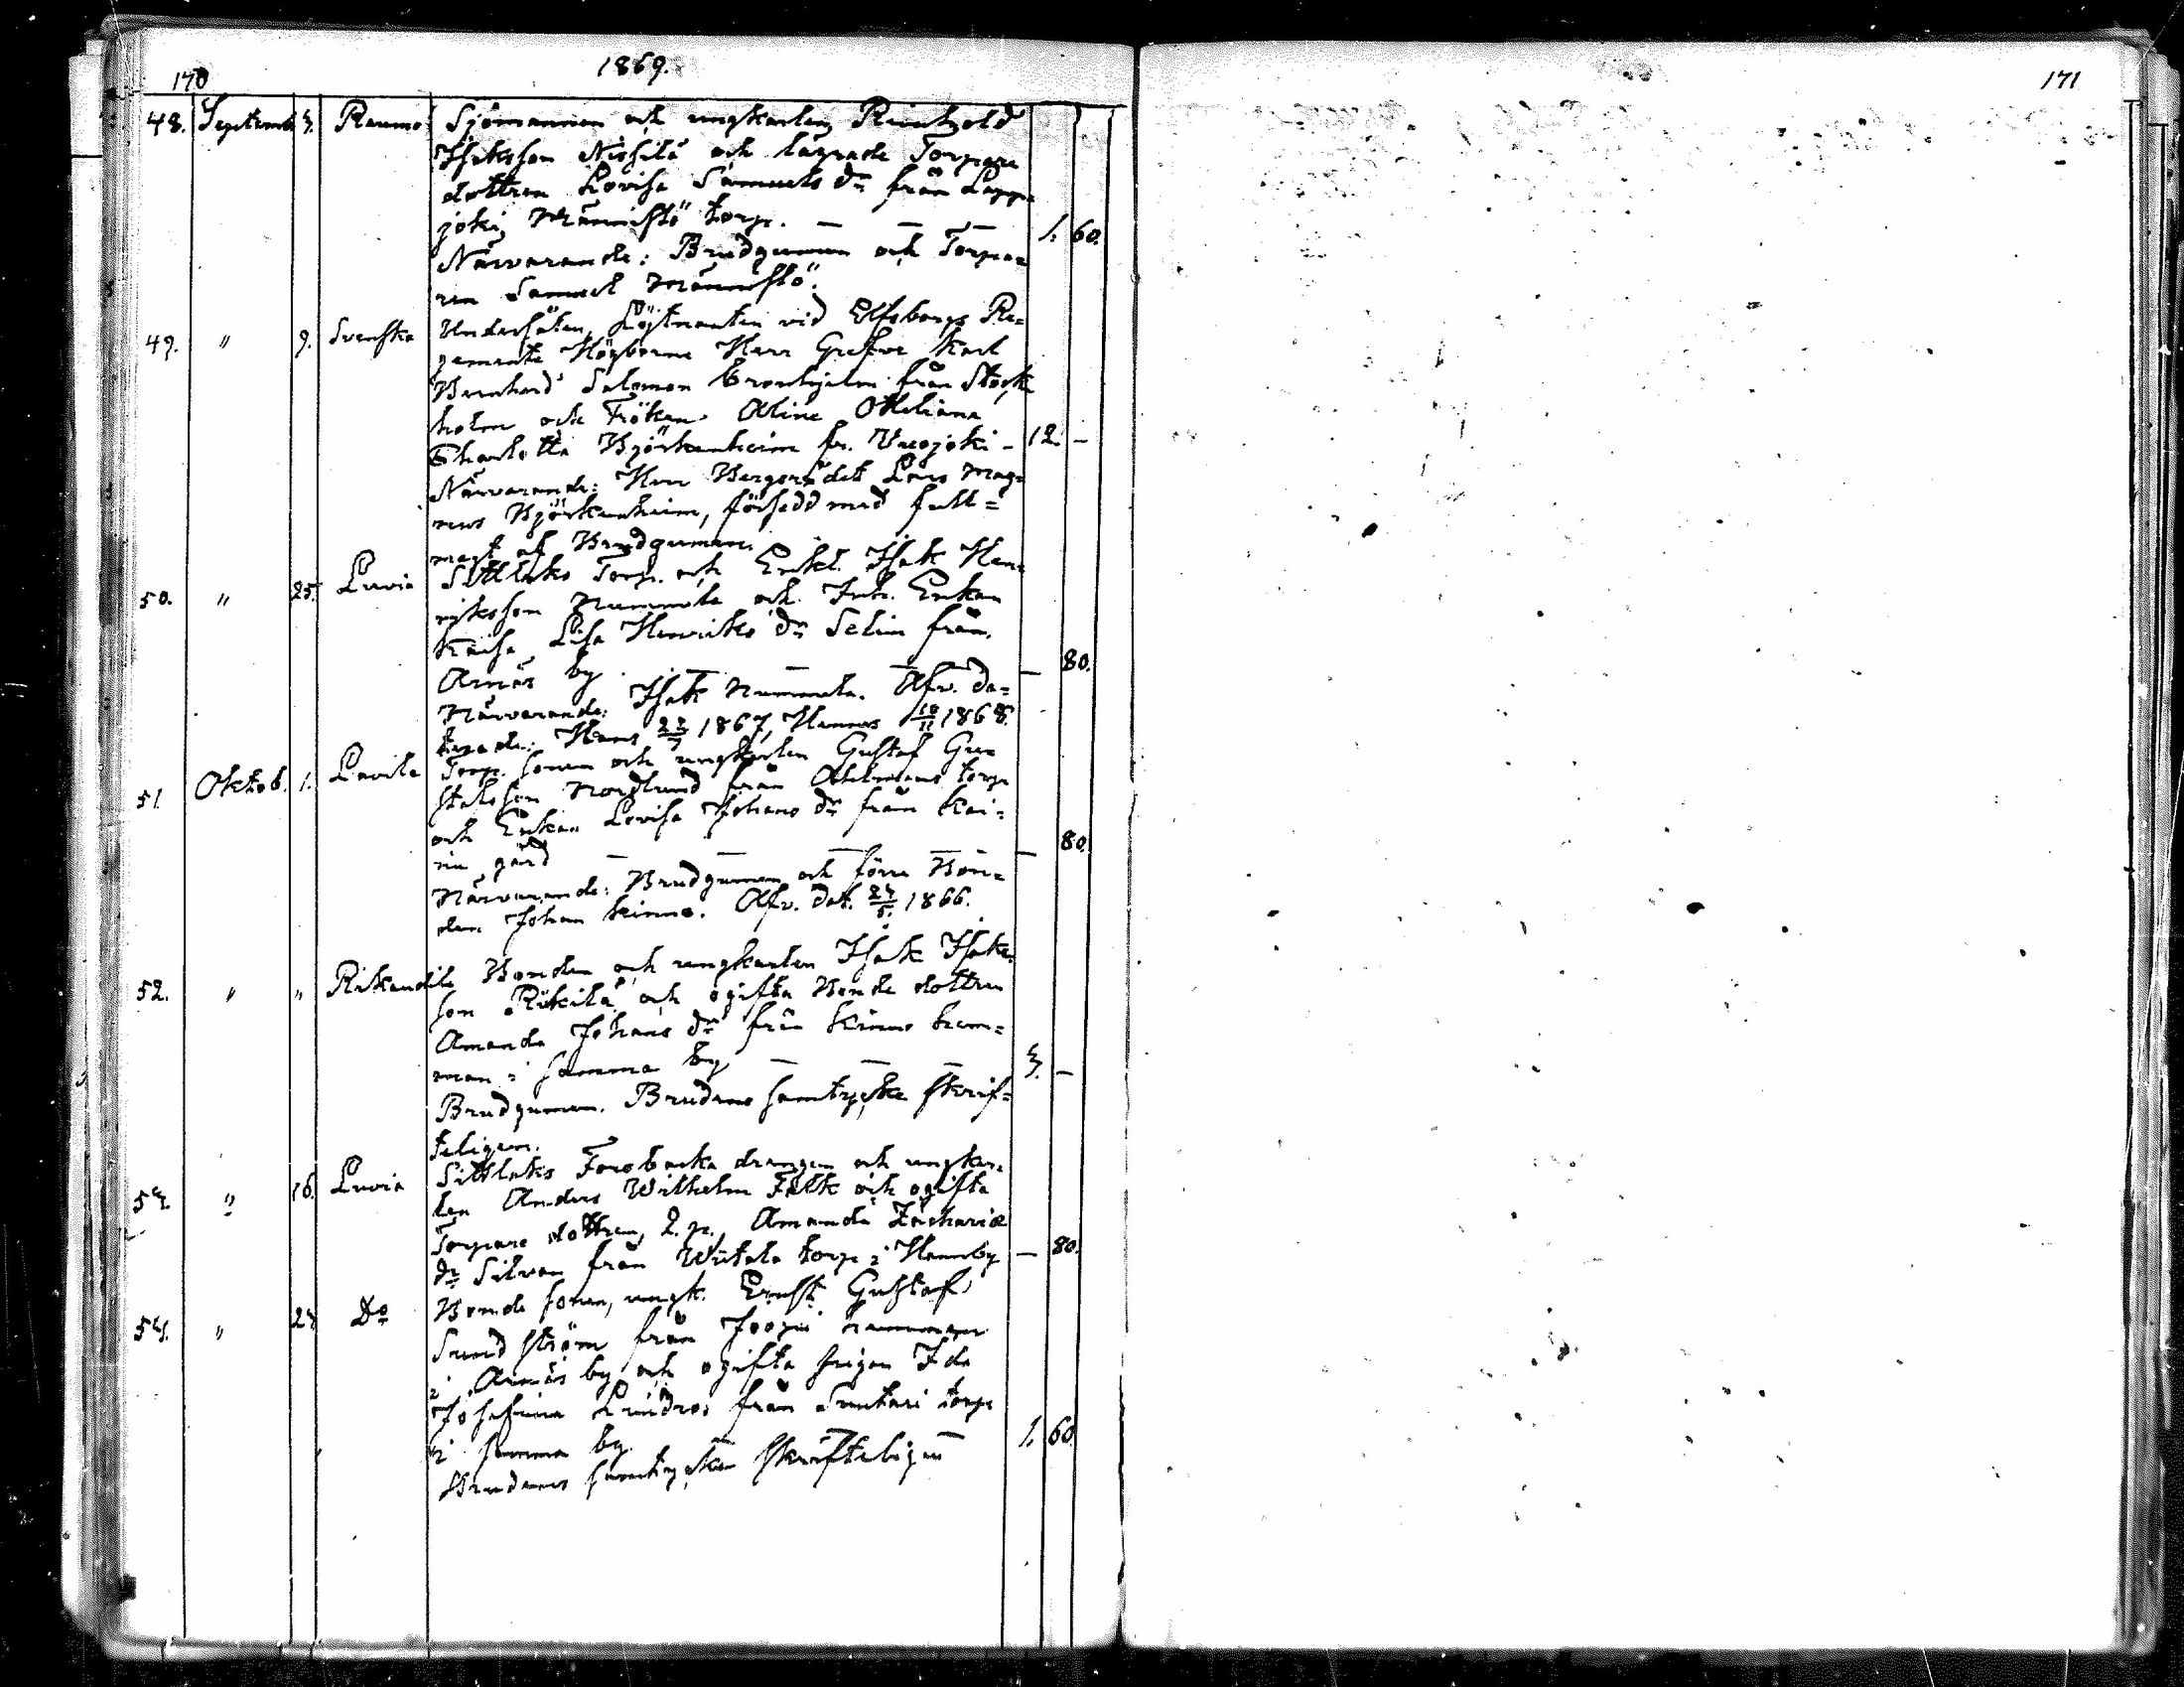 170
1869.
171
48. Septemb. 3. Raumo Sjömannen och ungkarlen Reinhold
Isaksson Nichilä och lägrade Torpare
dottren Lovisa Samuels dr från Lapp=
joki, Männistö torp. — — — 1. 60.
Närvarande: Brudgumen och Torpa=
ren Samuel Männistö.
49. " 9. Svenska Undersåten, Löjtnanten vid Elfsborgs Re=
gemente Högborne Herr Grefve Karl
Bernhard Salomon Cronhjelm från Stock
holm och Fröken Aline Otteliana
Charlotta Björkenheim fr. Vuojoki – 12. –
Närvarande: Herr Bergsrådet Lars Mag=
nus Björkenheim, försedd med full=
magt af Brudgumen.
50. " 25. Luvia Sittlaks Torp. och Enkl. Isak Hen=
riksson Nummela och Inh. Enkan
Kaisa Lisa Henriks dr Selin från
Arnäs by. — — — — 80.
Närvarande: Isak Nummela. Afv. da=
terade: Hans 22/7 1867, Hennes 18/11 1868.
51. Oktob. 1. Lavila Torp. sonen och ungkarlen Gustaf Gu=
stafsson Nordlund från Ahlmans torp
och Enkan Lovisa Johans dr från Kai=
nu gård — — — — — 80.
Närvarande: Brudgumen och förre Bon=
den Johan Kinno. Afv. dat. 24/5. 1866.
52. " " Rikandila Bonden och ungkarlen Isak Isaks
son Rikilä och ogifta Bonde dottren
Amanda Johans dr från Kinno hem=
man i samma by — — — 3. –
Brudgumen. Brudens samtycke skrif=
teligen.
53. " 16. Luvia Sittlaks Forsbacka drängen och ungkar=
len Anders Wilhelm Falk och ogifta
Torpare dottren, Amanda Zachariæ
dr Silvan från Wiitala torp i Hannby — 80.
54. " 24 Do Bonde sonen, ungk. Ernst Gustaf
Sundström från hemman
i Arnäs by och ogifta pigan Ida
Josefina Lindros från Suutari torp
i samma by. — — 1. 60.
Brudens samtycke skrifteligen